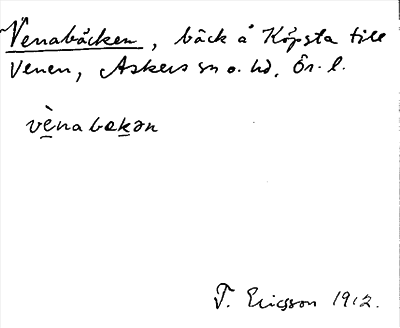 Venabäcken, bäck å Köpsta till
Venen, Askers sn o. hd, Ör. l.
vènabękən
T. Ericsson 1912.